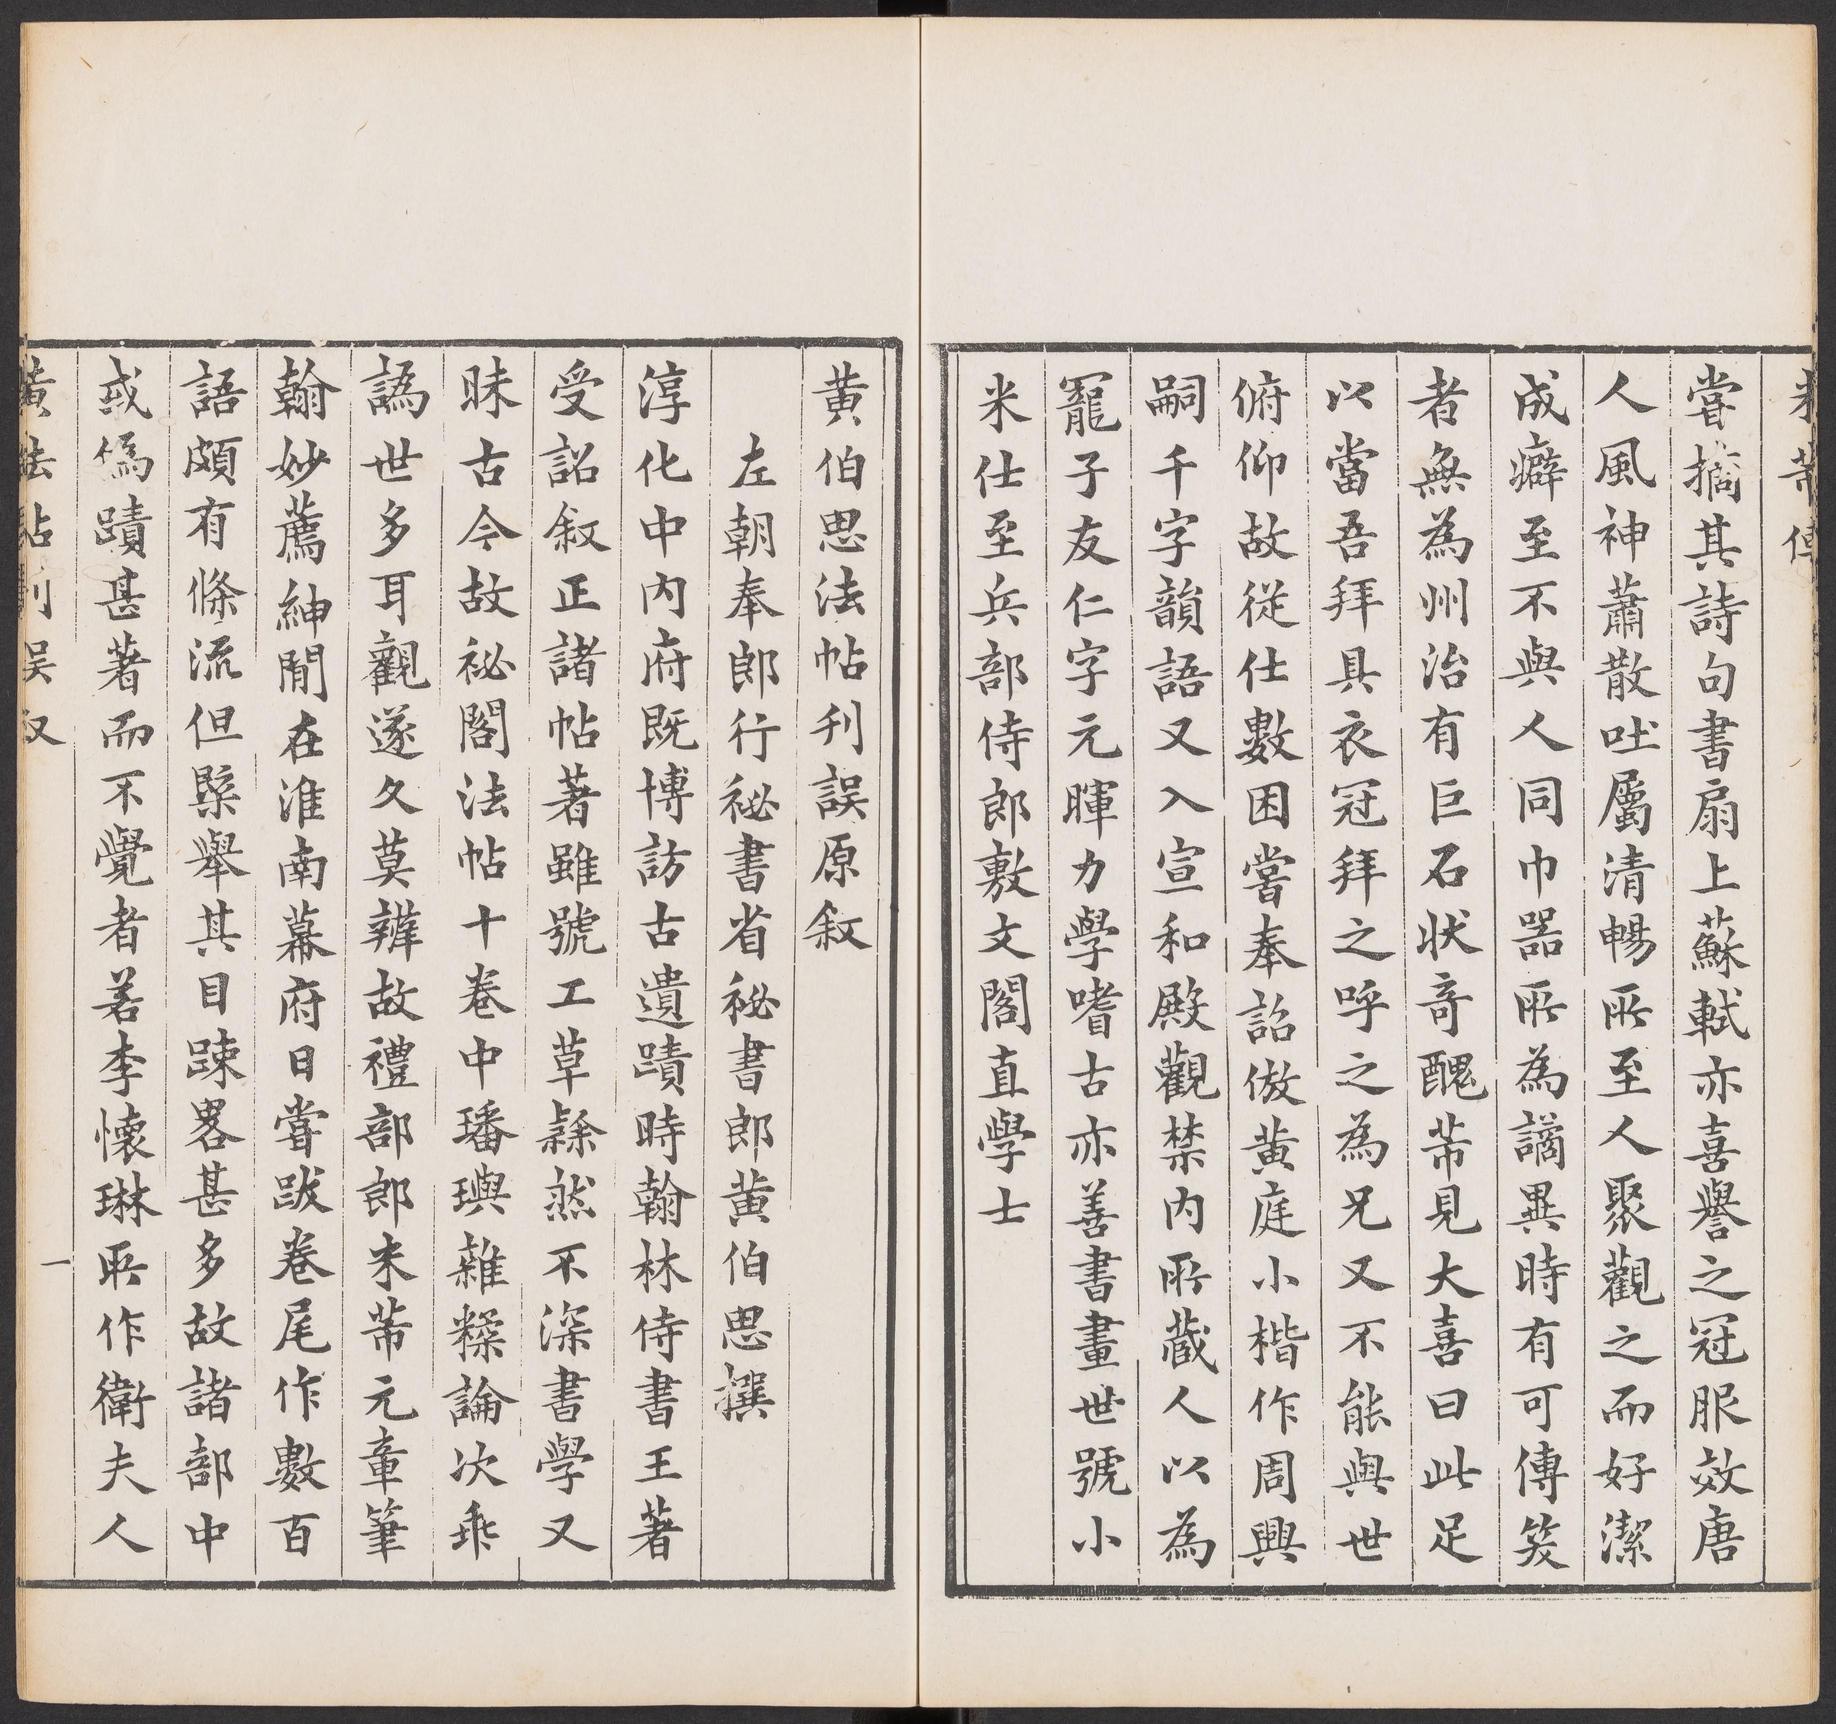 米芾傳
嘗摘其詩句書扇上蘇軾亦喜譽之冠服效唐
人風神蕭散吐屬清暢所至人聚觀之而好潔
成癖至不與人同巾器所為譎異時有可傳笑
者無為州治有巨石狀奇醜芾見大喜曰此足
以當吾拜具衣冠拜之呼之為兄又不能與世
俯仰故從仕數困嘗奉詔倣黃庭小楷作周興
嗣千字韻語又入宣和殿觀禁內所藏人以為
寵子友仁字元暉力學嗜古亦善書畫世號小
米仕至兵部侍郎敷文閣直學士
黃伯思法帖刋誤原叙
左朝奉郎行祕書省祕書郎黃伯思撰
淳化中內府既博訪古遺蹟時翰林侍書王著
受詔叙正諸帖著雖號工草隷然不深書學又
昧古今故祕閣法帖十卷中璠璵雜糅論次乖
譌世多耳觀遂久莫辨故禮部郎米芾元章筆
翰妙薦紳閒在淮南幕府日嘗跋卷尾作數百
語頗有條流但槩舉其目疎畧甚多故諸部中
或偽蹟甚著而不覺者若李懷琳所作衛夫人
黃法帖刋誤叙
一